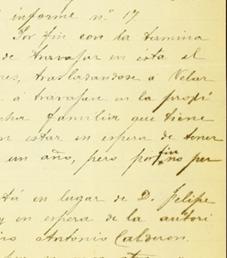 informe n.º 17
Por fin con la termina
de trabajar en ésta el
res, trasladandose á Velar
á trabajar en la propi
cha familia que tiene
estar en espera de tener
un año, pero por fin no per
tá en lugar de D. Felipe
y en espera de la autori
Antonio Calderon.